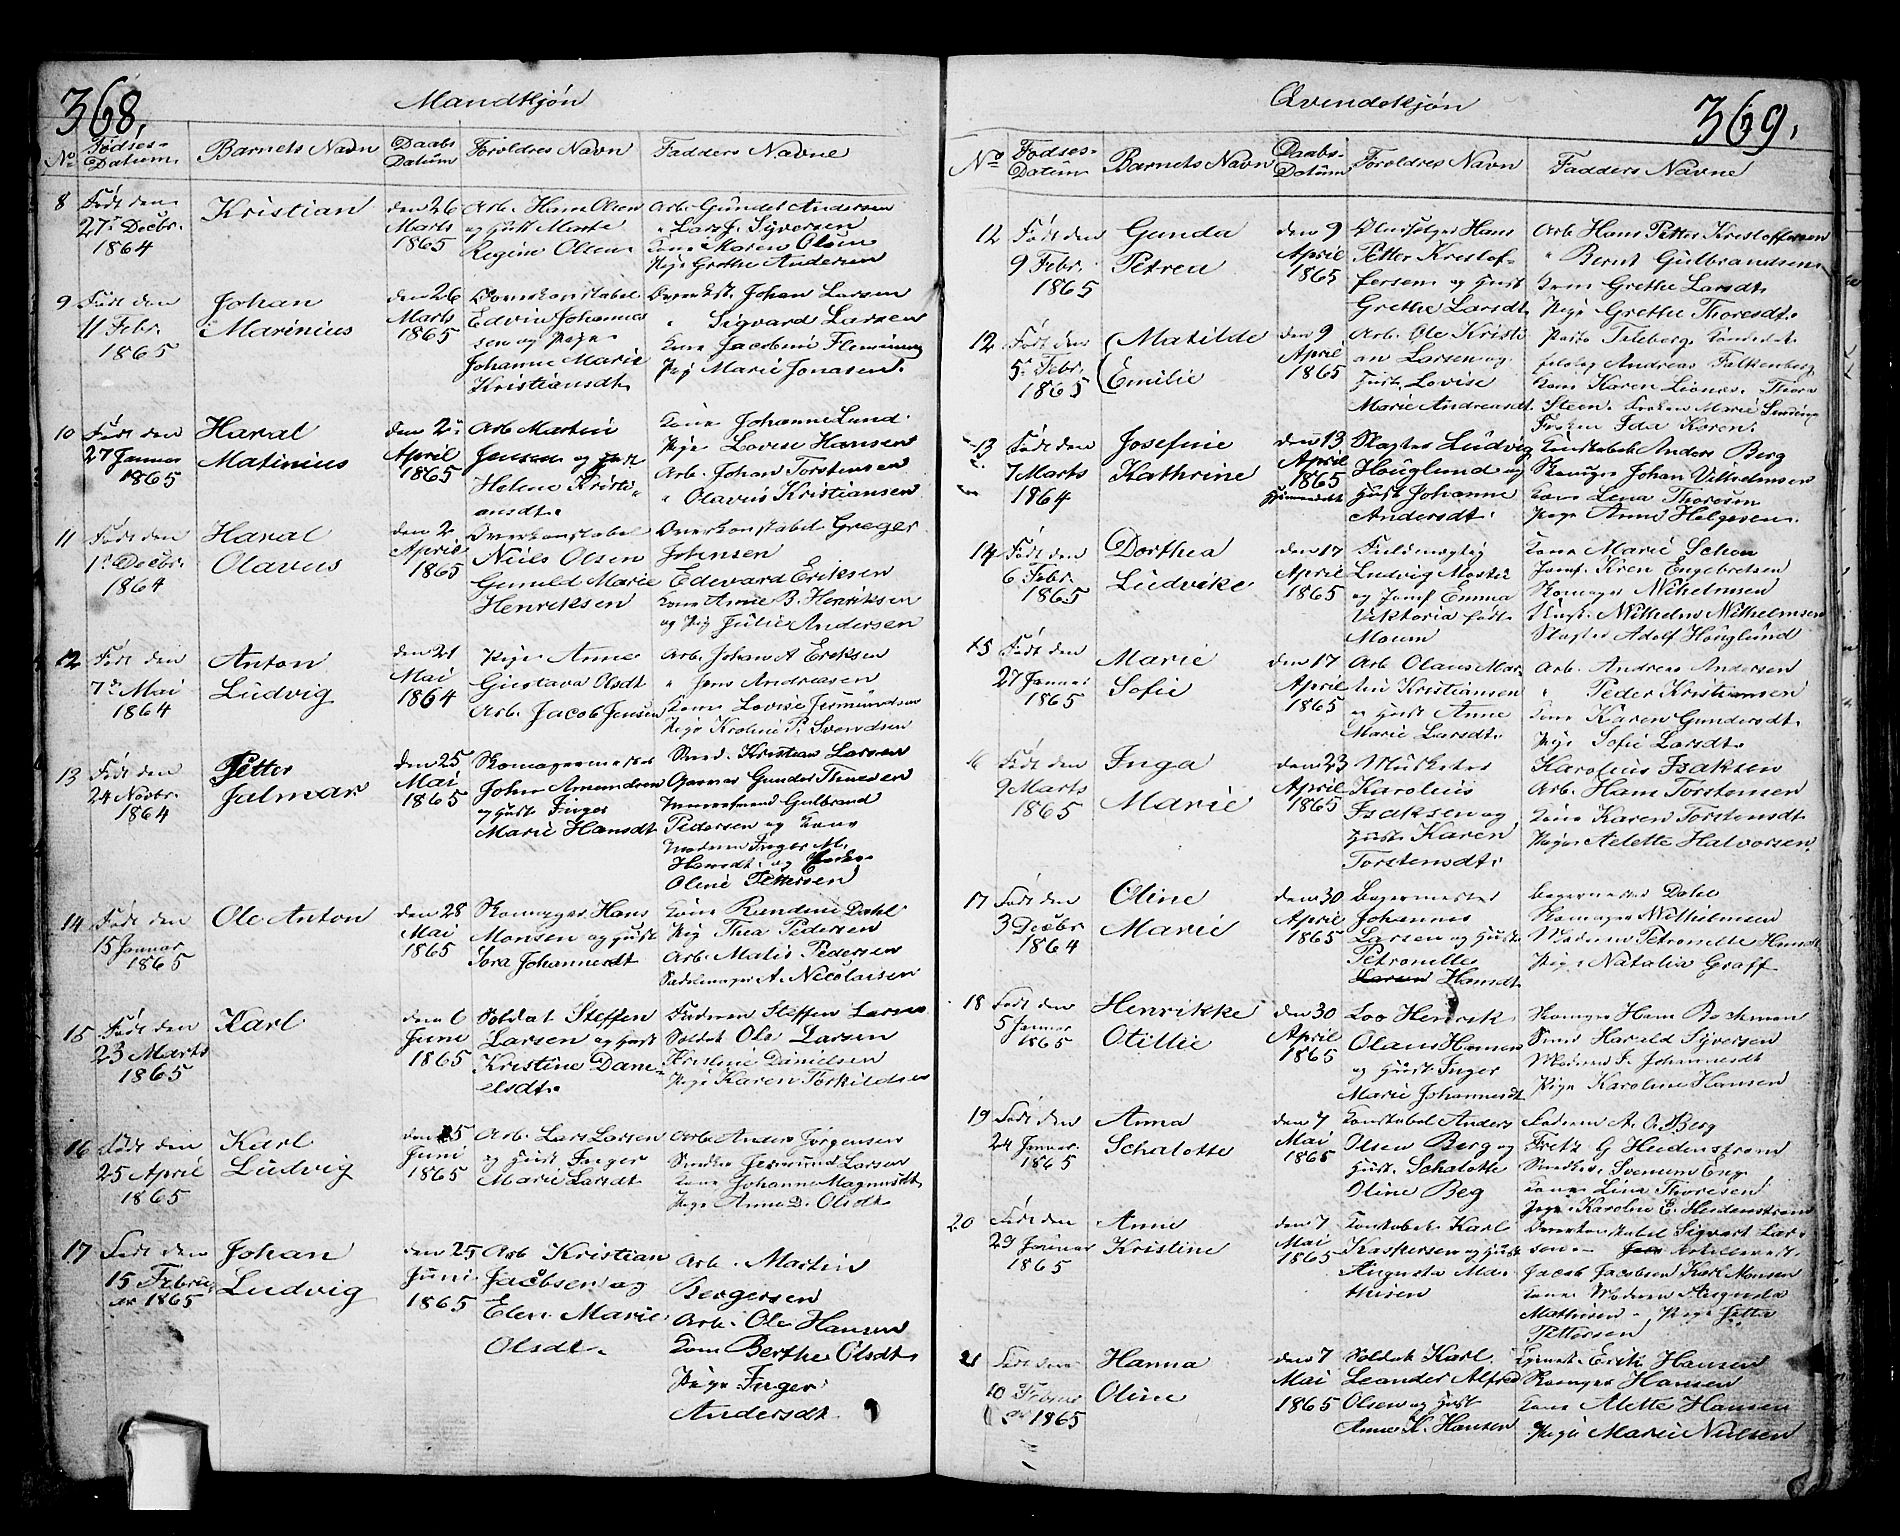 368.
Mandkjøn
No
Fødses-
Datum.
Barnets Navn
Daabs
Datum
Foreldres Navn
Fadders Navne
8
Født den
27de Decbr.
1864
Kristian
den 26
Marts
1865
Arb. Hans Olsen
og Hust Marte
Regine Olsen
Arb. Gunder Andersen
" Lars J. Syversen
Kone Maren Olsen
Pige Grethe Andersen
9
Født den
11 Febr.
1865
Johan
Marinius
den 26
Marts
1865
Overkonstabel
Edvin Johannes
sen og Pige
Johanne Marie
Kristiansdt.
Overkst. Johan Larsen
" Sigvard Larsen
Kone Jacobine Fleming
Pig Marie Jonasen.
10
Født den
27 Januar
1865
Haral
Matinius
den 2
April
1865
Arb Martin
Jensen og Hust
Helene Kristi-
ansdt.
Kone Johanne Lund.
Pige Lovise Hansen
Arb. Johan Torstensen
" Olavus Kristiansen
11
Født den
1st Decbr.
1864
Haral
Olavus
den 2
April
1865
Overkonstabel
Niels Olsen
Gunild Marie
Henriksen
Overkonstabel Greger
Johnsen
Edevard Eriksen
Kone Anne B. Henriksen
og Pig Julie Andersen
12
Født den
7de Mai
1864
Anton
Ludvig
den 21
Mai
1864
Pige Anne
Gustava Olsdt
Arb. Jacob Jensen
Arb. Johan A Eriksen
" Jens Andreasen
Kone Lovise Jermundsen
Pige Kroline P. Svendsen
13
Født den
24 Novbr.
1864
Petter
Jalmar
den 25
Mai
1865
Skomagermester
John Amundsen
og Hust Inger
Marie Hansdt
Smed. Kristian Larsen
Garver Gunder Thoresen
Gulbrand
Pedersen og Kone
Moderen Inger M.
Hansdt. og
Oline Pettersen
14
Født den
15 Januar
1865
Ole Anton
den 28
Mai
1865
Skomager Hans
Monsen og Hust
Sora Johannesdt
Kone Rundine Dahl
Pig Thea Pedersen
Arb. Matis Pedersen
Sadelmager A. Nicolaisen
15
Født den
23 Marts
1865
Karl
den 6
Juni
1865
Soldat Steffen
Larsen og Hust
Kristine Dani-
elsdt.
Faderen Steffen Larsen
Soldat Ole Larsen
Kristine Danielsen
Pige Karen Torkildsen
16
Født den
25 April
1865
Karl
Ludvig
den 25
Juni
1865
Arb. Lars Larsen
og Hust Inger
Marie Larsdt
Arb. Anders Jørgensen
Snedker Jermund Larsen
Kone Johanne Magnusdt
Pige Anne D. Olsdt.
17
Født den
15 Februa
ar 1865
Johan
Ludvig
den 25
Juni
1865
Arb Kristian
Jacobsen og
Elen Marie
Olsdt.
Arb. Martin
Bergersen
Arb. Ole Hansen
Kone Berthe Olsdt.
Pige Inger
Andersdt.
369.
Qvindekjøn
No
Fødses-
Datum
Barnets Navn
Daabs-
Datum
Foreldres Navn
Fadders Navne
12
Født den
9 Febr.
1865
Gunda
Petren
den 9
April
1865
Hans
Petter Kristof-
fersen og Hust
Grethe Larsdt
Arb Hans Petter Kristoffersen
" Bernt Gulbrandsen
Kone Grethe Larsdt
Pige Grethe Thoresdt.
12
Født den
5 Febr.
1865
Matilde
Emilie
den 9
April
1865
Arb. Ole Kristi
an Larsen og
Hust. Lovise
Marie Andreasdt.
Andreas Falkenberg
Kone Karen Lionæs. Thora
Steen. Frøken Marie
Frøken Ida Koren.
13
Født den
7 Marts
1864
Josefine
Kathrine
den 13
April
1865
Hjemmedøbt
Slagter Ludvig
Houglund og
Hust Johanne
Andersdt.
Konstabel Anders Berg
Skomager Johan Vilhelmsen
Kone Lena Thoresen
Pige Anne Helgesen.
14
Født den
6 Febr.
1865
Dorthea
Ludvike
den 17
April
1865
Fuldmægtig
Ludvig
og Jomf Emma
Viktoria født
Moum
Kone Marie Schou
Jomf. Kiren Engebretsen
Skomager Wilhelmsen
Ungk. Wilhelm Wilhelmsen
Slagter Adolf Houglund
15
Født den
27 Januar
1865
Marie
Sofie
den 17
April
1865
Arb Olaus Mar-
tin Kristiansen
og Hust Anne
Marie Larsdt.
Arb. Andreas Andersen
" Peder Kristiansen
Kone Karen Gundersdt.
Pige Sofie Larsdt.
16
Født den
9 Marts
1865
Inga
Marie
den 23
April
1865
Musketer
Karolius
Isaksen og
Hust. Karen
Torstensdt.
Karolius Isaksen
Arb. Hans Torstensen
Kone Karen Torstensdt.
Pige Aelette Halvorsen.
17
Født den
3 Decbr
1864
Oline
Marie
den 30
April
1865
Bagermester
Johannes
Larsen og Hust.
Petronelle
Larsen Hansdt.
Bagermester Dahl
Skomager Wilhelmsen
Moderen Petronelle Hansdt
Pige Natalia Graff
18
Født den
5 Januar
1865
Henrikke
Otillie
den 30
April
1865
Los Henrik
Olaus Hansen
og Hust Inger
Marie Johannesdt
Skomager Hans Bachman
Smed Harald Syversen
Moderen I. Johannesdt
Pige Karoline Hansen
19
Født den
24 Januar
1865
Anna
Schalotte
den 7
Mai
1865
Konstabel Anders
Olsen Berg og
Hust. Schalotte
Oline Beg
Faderen A. O. Berg
Fritz G Heidenstrøm
Snedker Svenum Eng
Kone Lina Thoresen
Pige Karoline E. Heidenstrøm
20
Født den
29 Januar
1865
Anne
Kristine
den 7
Mai
1865
Konstabel Karl
Kaspersen og Hust
Augusta Ma-
thisen
Overkonstabel Sigvart Lar-
sen.
Jacob Jacobsen Karl Monsen
Kone Moderen Augusta
Mathisen. Pige Jetta
Pettersen
21
Født den
10 Februar
1865
Hanna
Oline
den 7
Mai
1865
Soldat Karl
Leander Alfred
Olsen og Hust
Anne K. Hansen
Erik Hansen
Skomager Hansen
Kone Alette Hansen
Pige Marie Nielsen